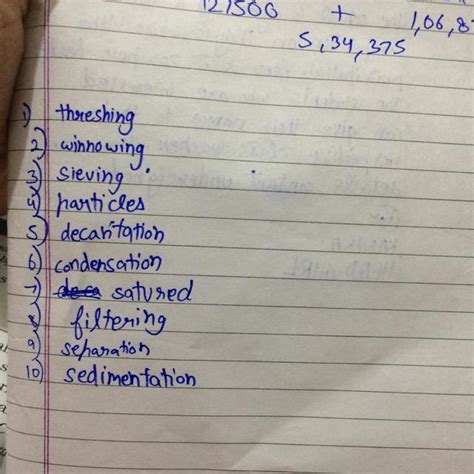 121500 + 1,06,8
5,34,375
1) threshing
2) winnowing
3) sieving
4) particles
5) decantation
6) condensation
7) satured
8) filtering
9) separation
10) sedimentation